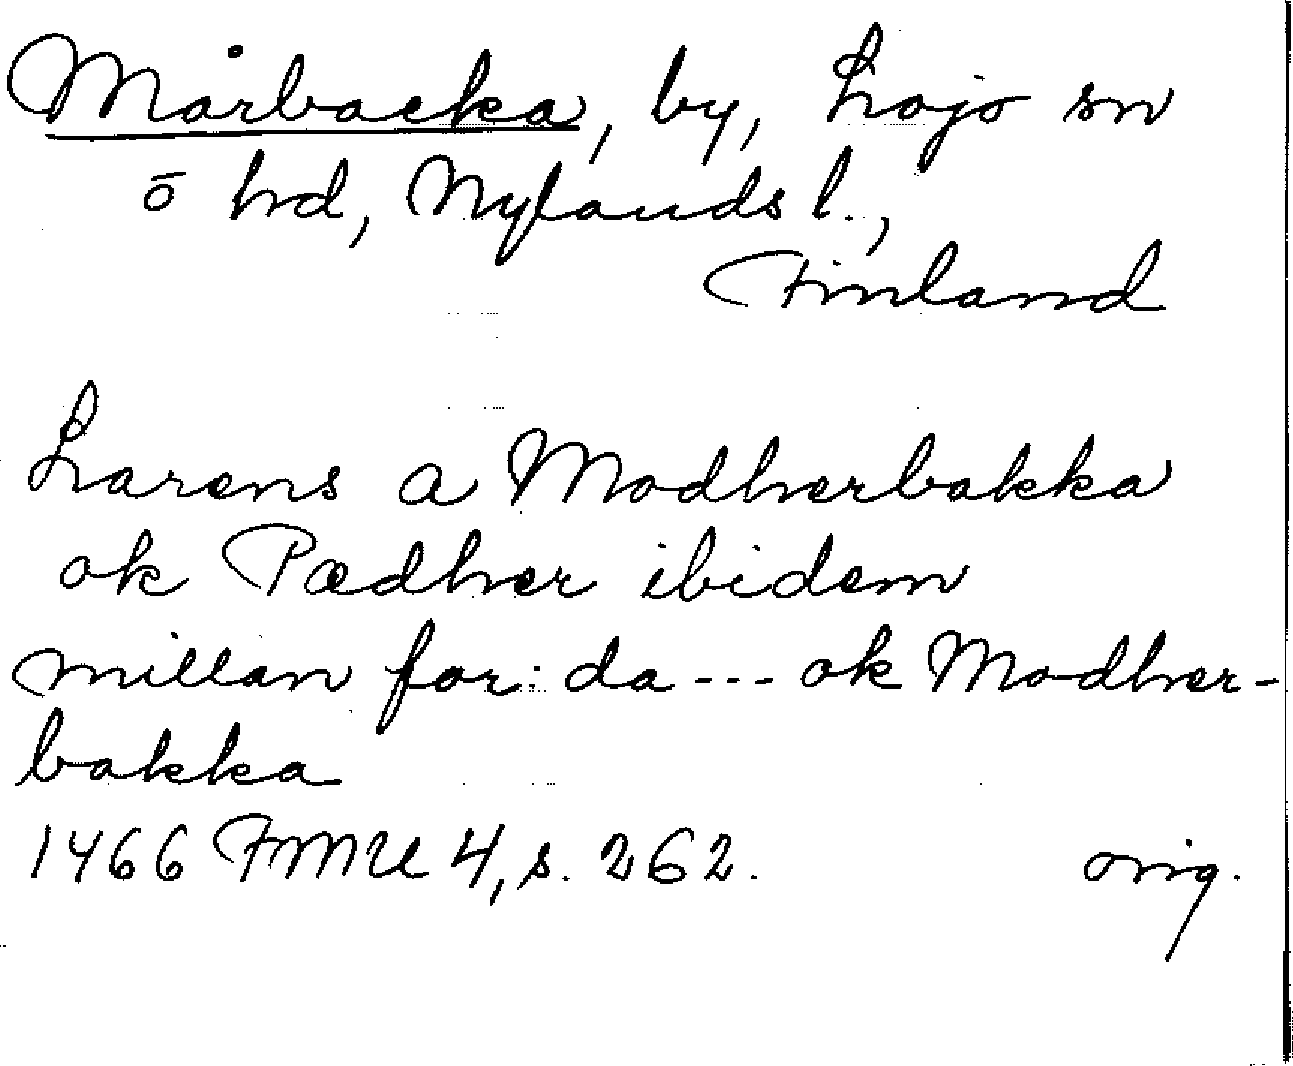 Mårbacka, by, Lojo sn
o hd, Nylands l.,
Finland
Larens a Modherbakka
ok Pædher ibidem
millan for:da --- ok Modher-
bakka
1466 FMU 4, s. 262. orig.